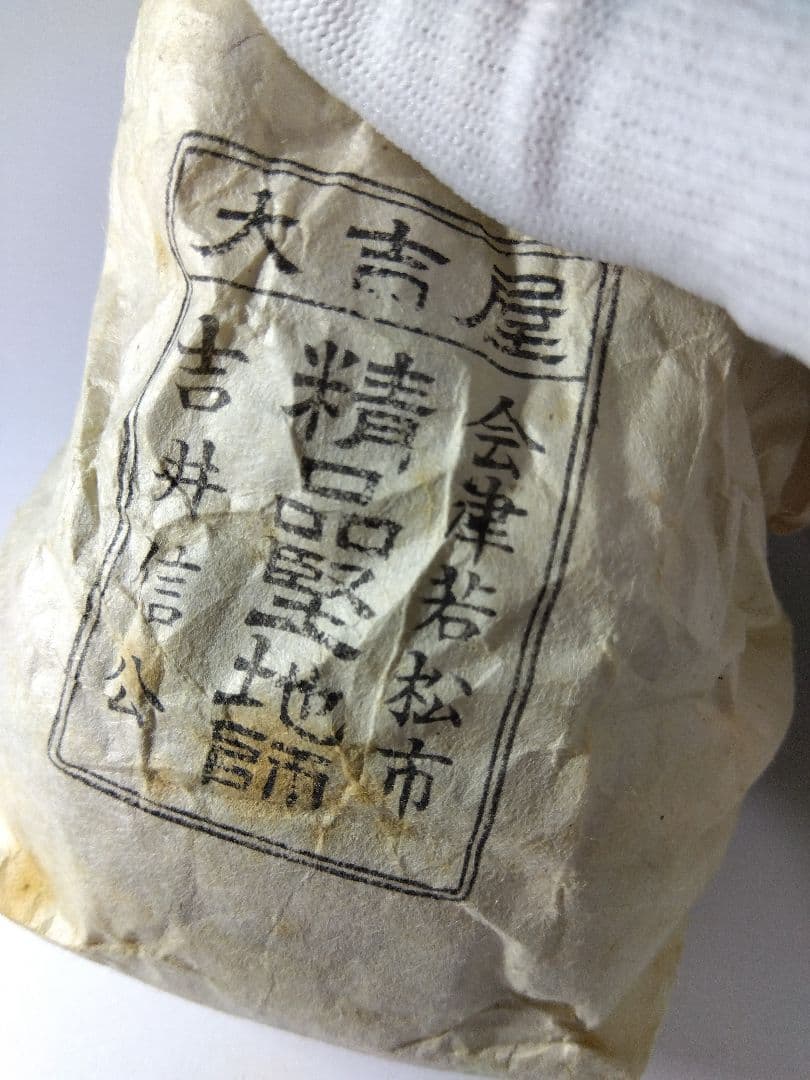 大吉屋
会津若松市
精品堅地師
吉井信公